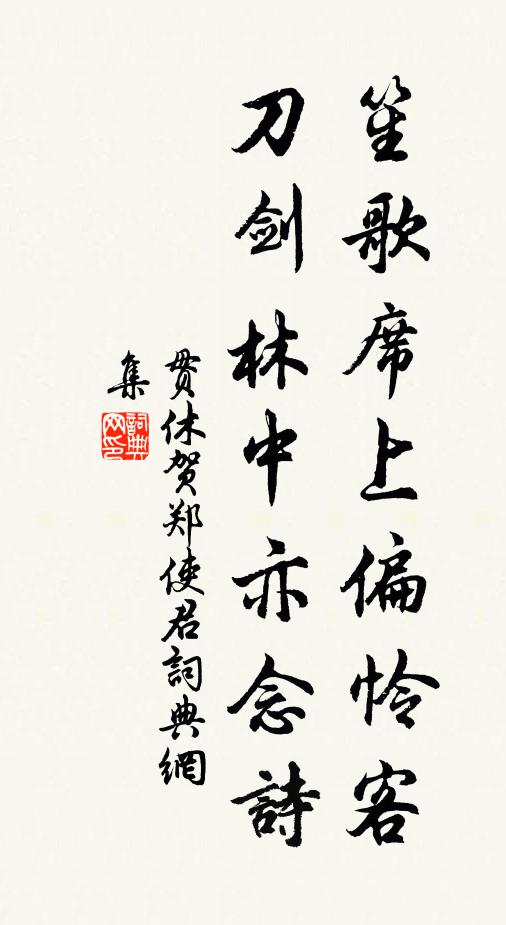 笙歌席上偏怜客
刀剑林中亦念詩
贯休贺郑使君詞典網
集
詞典网印